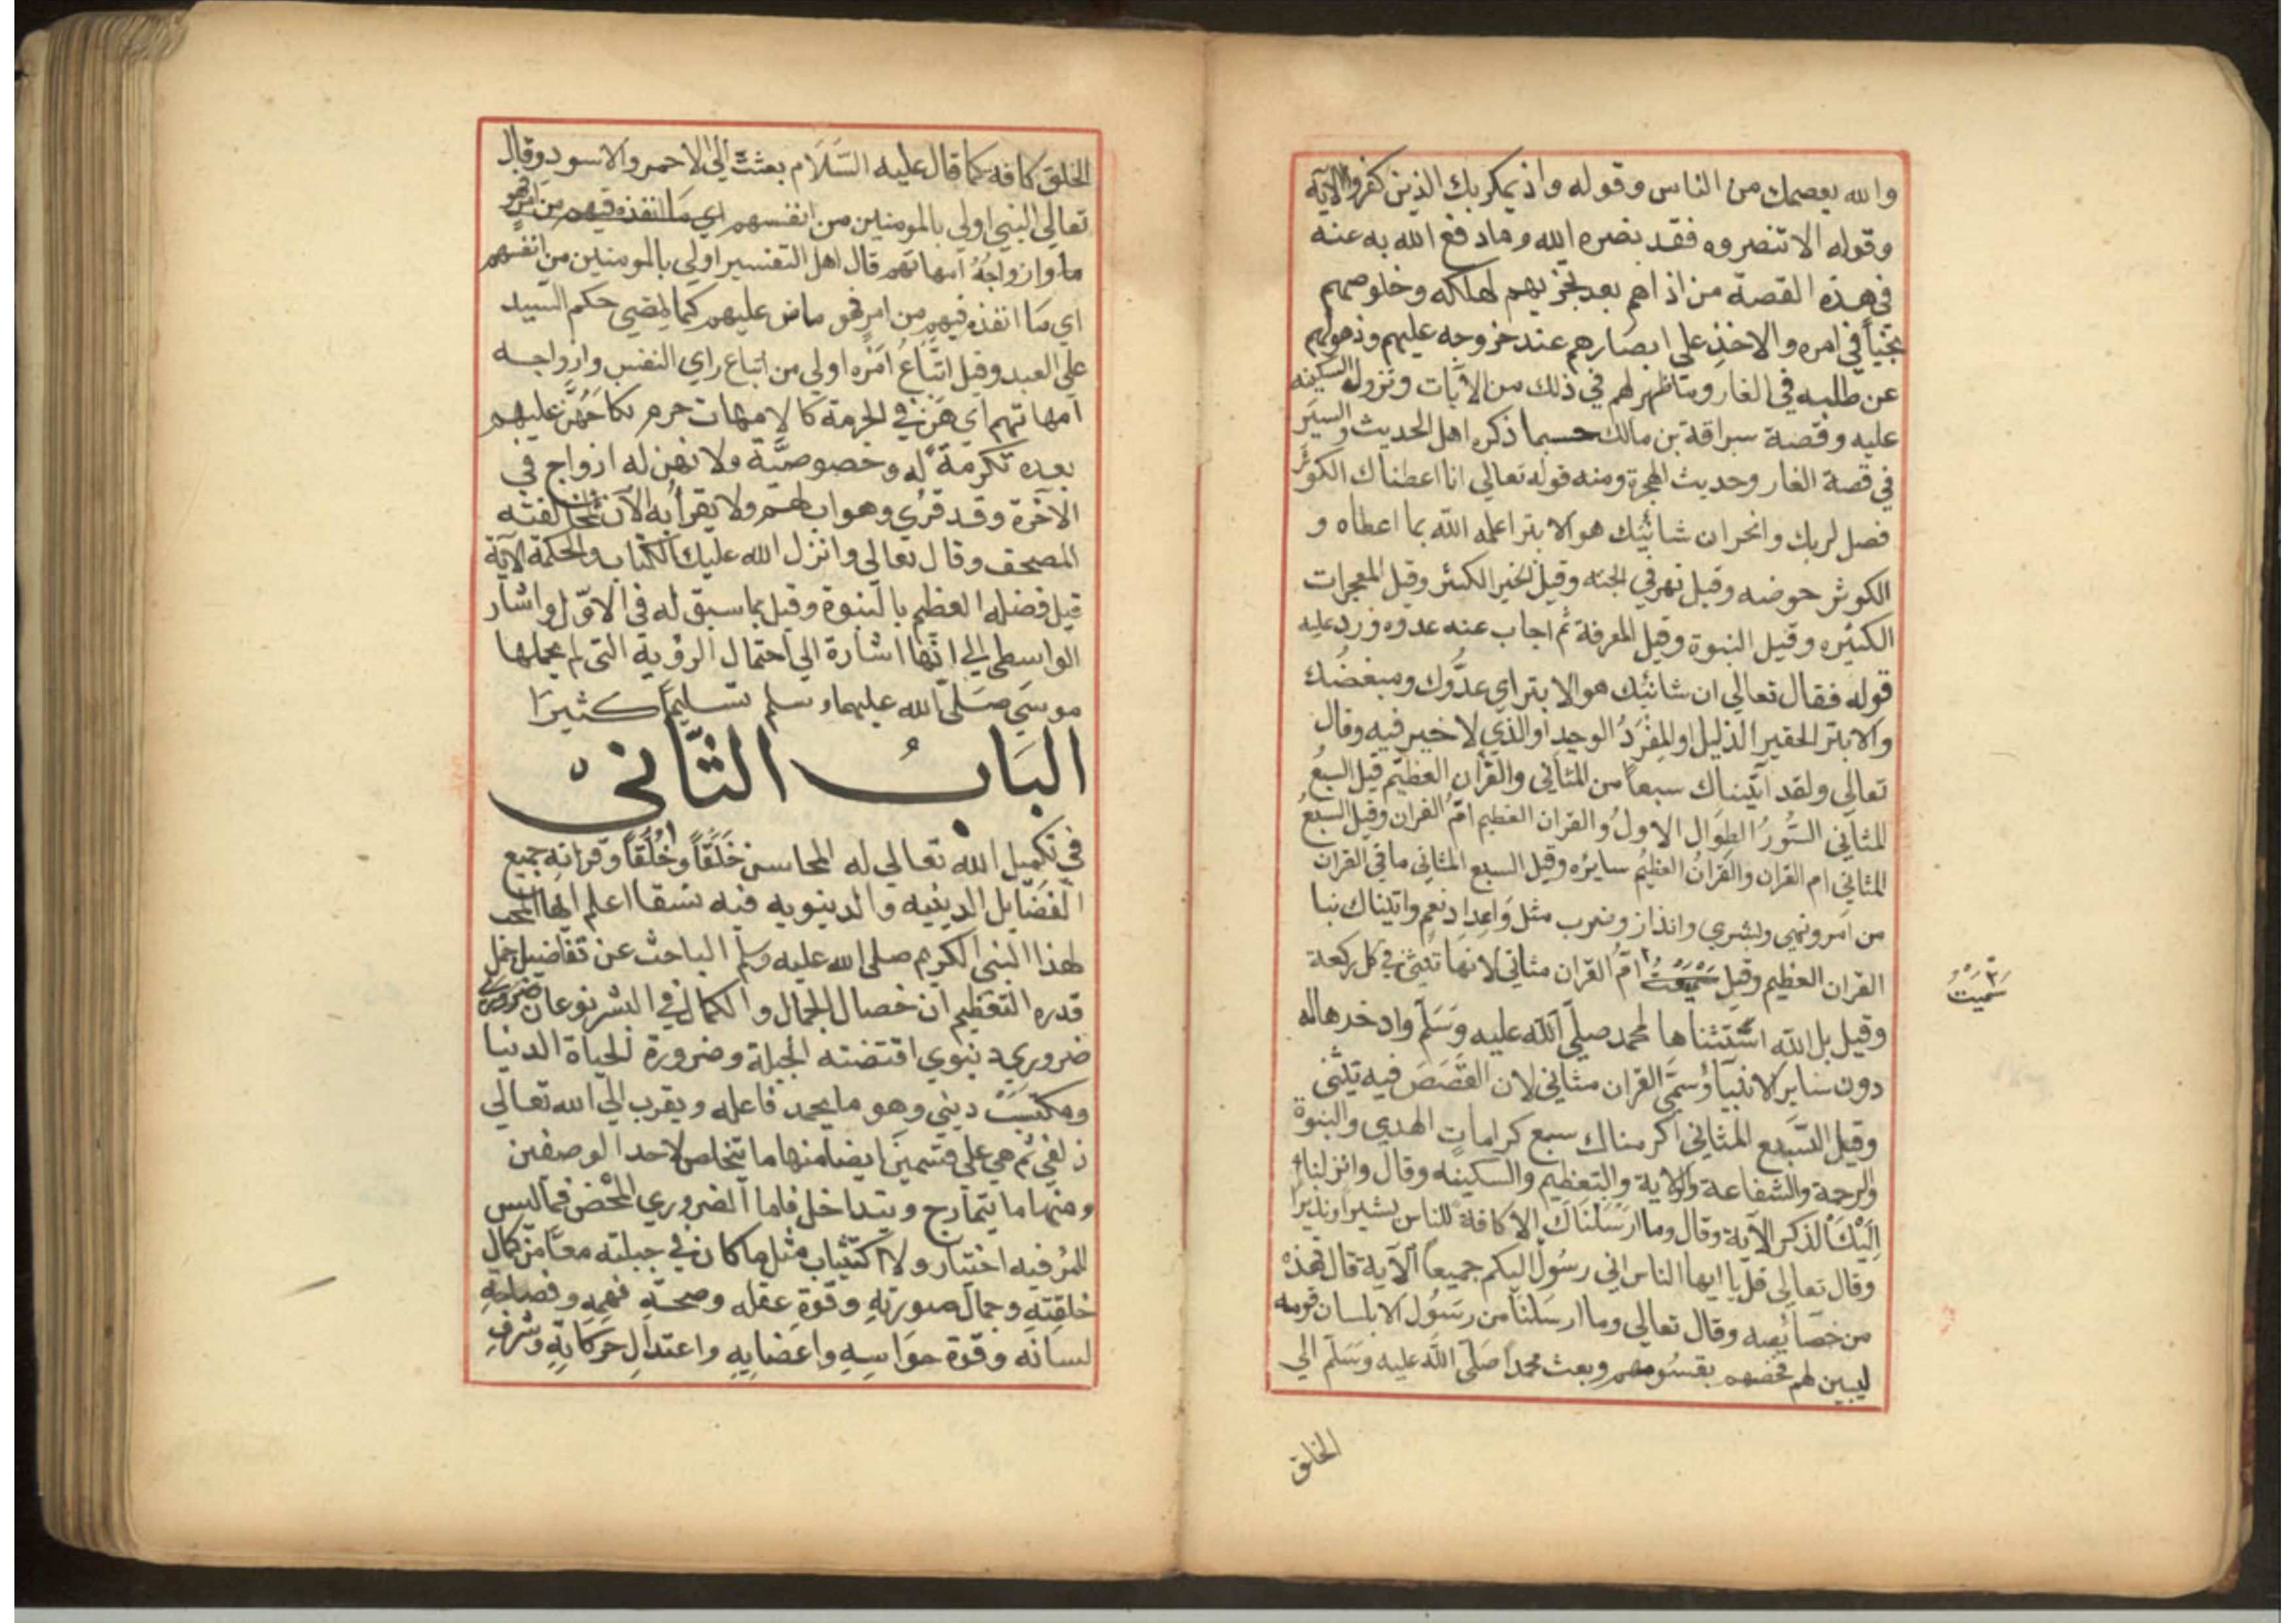 والله يعصمك من الناس وقوله واذ يمكر بك الذين كفروا الاية
وقوله الا تنصروه فقد نصره الله وما دفع الله به عنه
في هذه القصة من اذاهم بعد تحزبهم لهلكه وخلوصهم
نجيا في امره والاخذ على ابصارهم عند خروجه عليهم وذهولهم
عن طلبه في الغار وما ظهر لهم في ذلك من الآيات ونزول السكينه
عليه وقصة سراقة بن مالك حسبما ذكره اهل الحديث والسير
في قصة الغار وحديث الهجرة ومنه قوله تعالي انا اعطناك الكوثر
فصل لربك وانحر ان شانيك هو الابتر اعلمه الله بما اعطاه و
الكوثر حوضه وقيل نهر في الجنه وقيل الخير الكثير وقيل المعجزات
الكثيره وقيل النبوة وقيل المعرفة ثم اجاب عنه عدوه ورد عليه
قوله فقال تعالي ان شانئك هو الابتر اي عدوك ومبغضك
والابتر الحقير الذليل او المفرد الوحيد او الذي لا خير فيه وقال
تعالي ولقد اتيناك سبعا من المثاني والقرآن العظيم قيل السبع
المثاني السور الطوال الاول والقران العظيم ام القران وقيل السبع
المثاني ام القران والقران العظيم سايره وقيل السبع المثاني ما في القران
من امر ونهي وبشري وانذار وضرب مثل واعداد نعم واتيناك نبا
القران العظيم وقيل سميت ام القران مثاني لانها تثني في كل ركعة
سميت
وقيل بل الله استثناها لمحمد صلي الله عليه وسلم وادخرها له
دون ساير الانبيآ وسمي القران مثاني لان القصص فيه تثني
وقيل السبع المثاني اكرمناك سبع كرامات الهدي والنبوة
والرحمة والشفاعة والولاية والتعظيم والسكينه وقال وانزلنا
اليك الذكر الآية وقال وما ارسلناك الا كافة للناس بشيرا ونذيرا
وقال تعالي قل يا ايها الناس اني رسول اليكم جميعا الآية قال فهذه
من خصائصه وقال تعالي وما ارسلنا من رسول الا بلسان قومه
ليبين لهم فخصهم بقومهم وبعث محمدا صلي الله عليه وسلم الي
الخلق
الخلق كافه كما قال عليه السلام بعثت الي الاحمر والاسود وقال
تعالي النبي اولي بالمومنين من انفسهم اي ما انفذه فيهم من امر فهو
ما وازواجه امهاتهم قال اهل التفسير اولي بالمومنين من انفسهم
اي ما انفذه فيهم من امر فهو ماض عليهم كما يمضي حكم السيد
علي العبد وقيل اتباع امره اولي من اتباع راي النفس وازواجه
امهاتهم اي هن في الحرمة كالامهات حرم نكاحهن عليهم
بعده تكرمة له وخصوصية ولانهن له ازواج في
الآخرة وقد قرئ وهو اب لهم ولا يقرا به الآن لمخالفته
المصحف وقال تعالي وانزل الله عليك الكتاب والحكمة الآية
قيل فضله العظيم بالنبوة وقيل بما سبق له في الاول واشار
الواسطي الي انها اشارة الي احتمال الرؤية التي لم يحملها
موسي صلي الله عليهما وسلم تسليما كثيرا
الباب الثاني
في تكميل الله تعالي له المحاسن خلقا وخلقا وقرانه جميع
الفضايل الدينيه والدينويه فيه نسقا اعلم ايها المحب
لهذا النبي الكريم صلي الله عليه وسلم الباحث عن تفاضيل جمل
قدره التعظيم ان خصال الجمال والكمال في البشر نوعان ضروري
ضروري دنيوي اقتضته الجبلة وضرورة الحياة الدنيا
ومكتسب ديني وهو ما يحمد فاعله ويقرب الي الله تعالي
زلفي ثم هي علي قسمين ايضا منها ما يتخلص لاحد الوصفين
ومنها ما يتمازج ويتداخل فاما الضروري المحض فما ليس
للمرء فيه اختيار ولا اكتساب مثل ما كان في جبلته من كمال
خلقته وجمال صورته وقوة عقله وصحة فهمه وفصاحة
لسانه وقوة حواسه واعضايه واعتدال حركاته وشرف